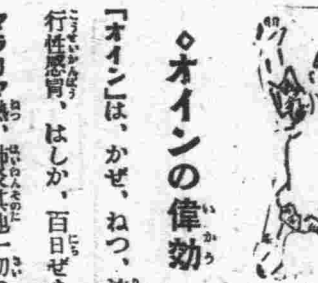 ◇オインの偉効
『オイン』は、かぜ、ねつ、
行性感冒、はしか、百日ぜ
マラリヤ熱、肺炎其他一切